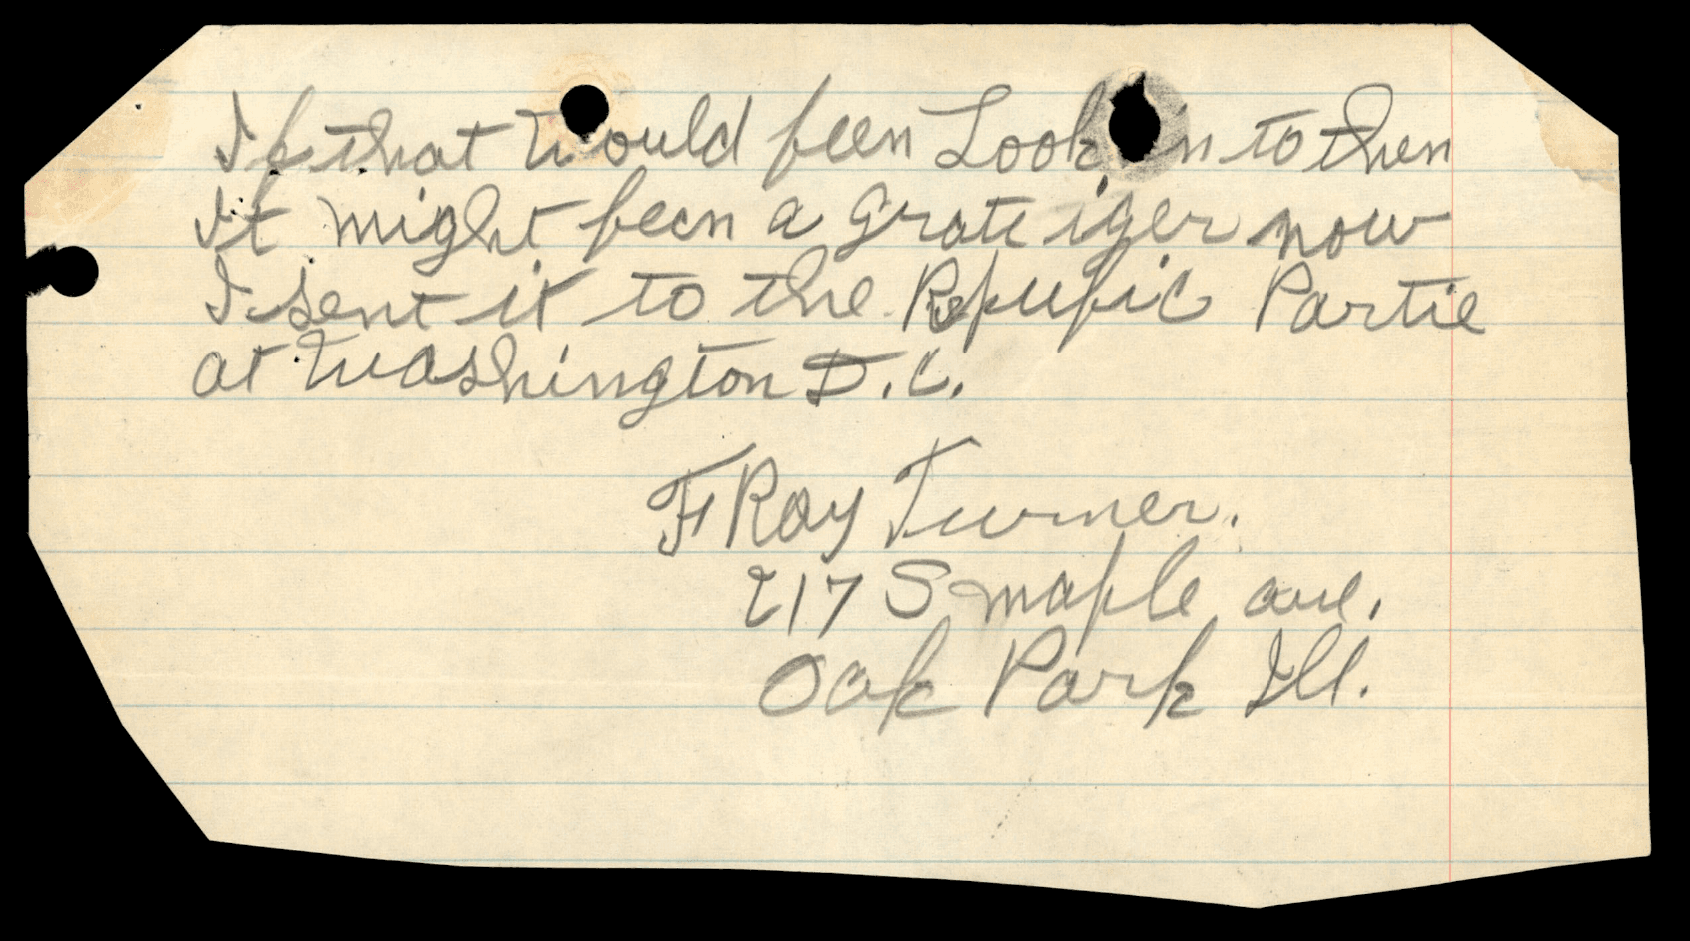 If that would been Look in to then
it might been a grate iger now
I sent it to the Repubic Partie
at Washington D.C.
F Ray Turner.
217 S maple ave.
Oak Park Ill.